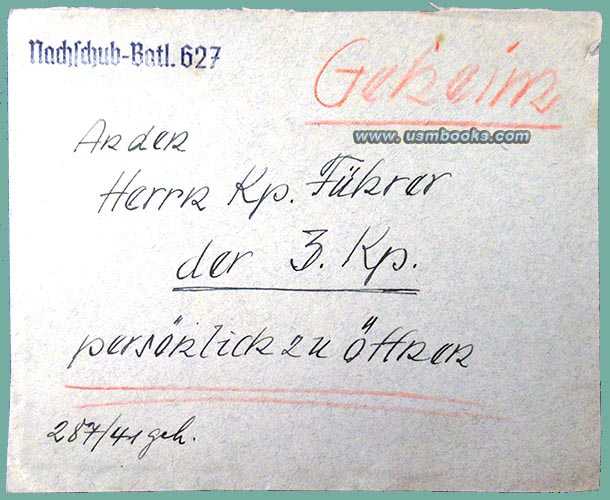 Nachschub-Batl. 627
Geheim
www.usmbooks.com
An den
Herrn Kp. Führer
der 3. Kp.
persönlich zu öffnen
287/41 geh.